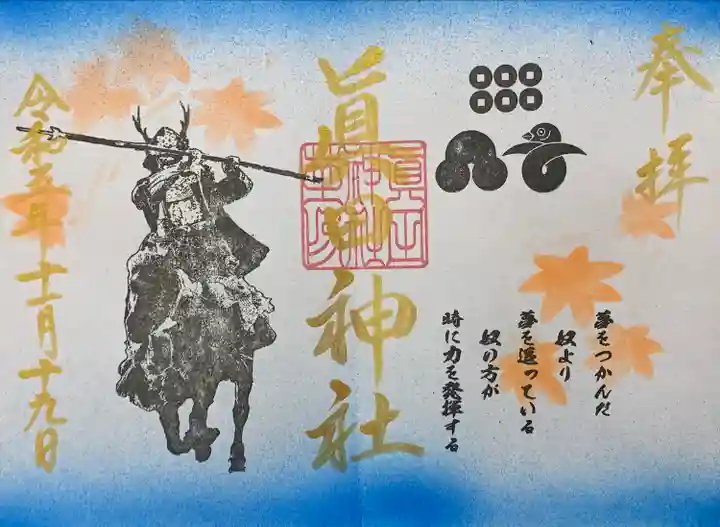 奉拝
夢をつかんだ
奴より
夢を追っている
奴の方が
時に力を発揮する
眞田神社
令和五年十一月十九日